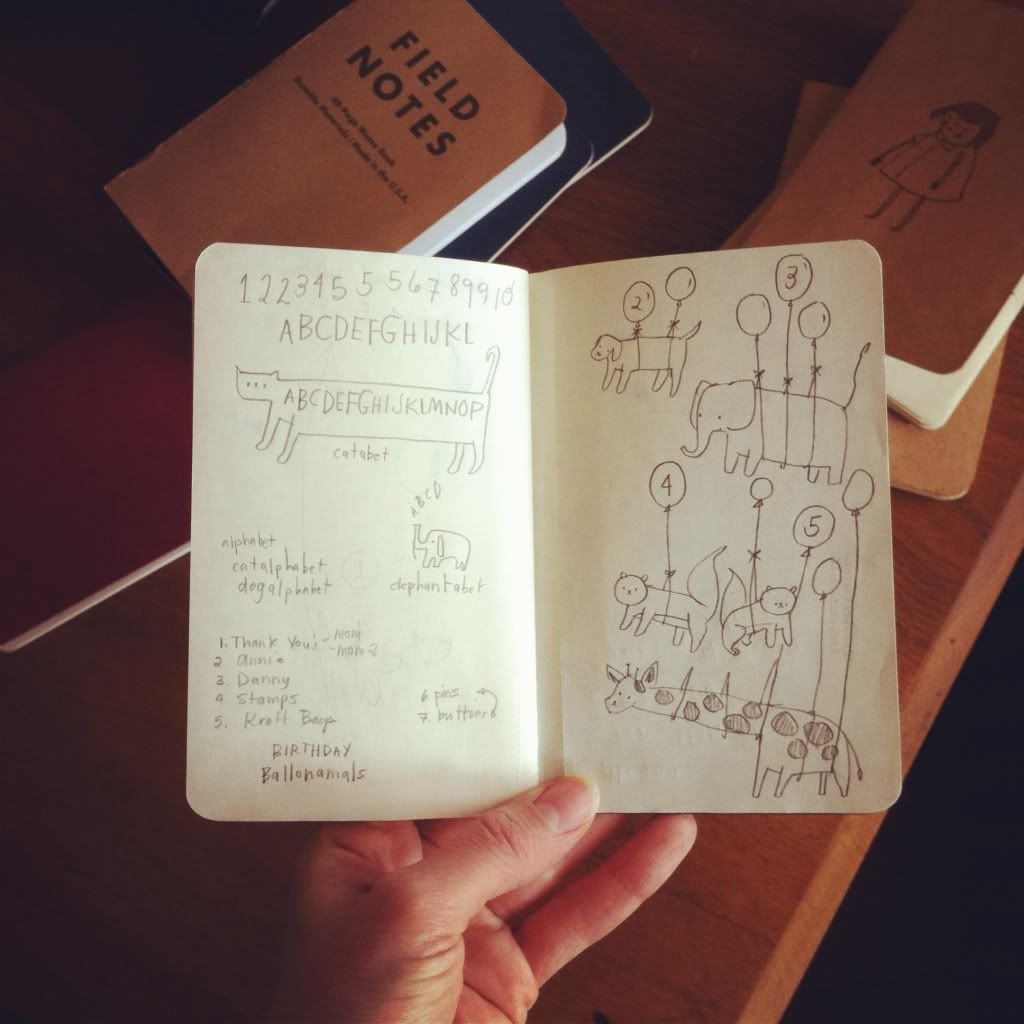 FIELD
NOTES
48-Page Memo Book
Durable Materials / Made in the U.S.A.
1 2 2 3 4 5 5 5 6 7 8 9 9 10
ABCDEFGHIJKL
ABCDEFGHIJKLMNOP
catabet
ABCD
alphabet
catalphabet
dogalphabet
elephantabet
1. Thank You's - mom
- mom 2
2 annie
3. Danny
4 Stamps
5. Kraft Bags
6 pins
7. buttons
BIRTHDAY
Ballonamals
2
3
4
5